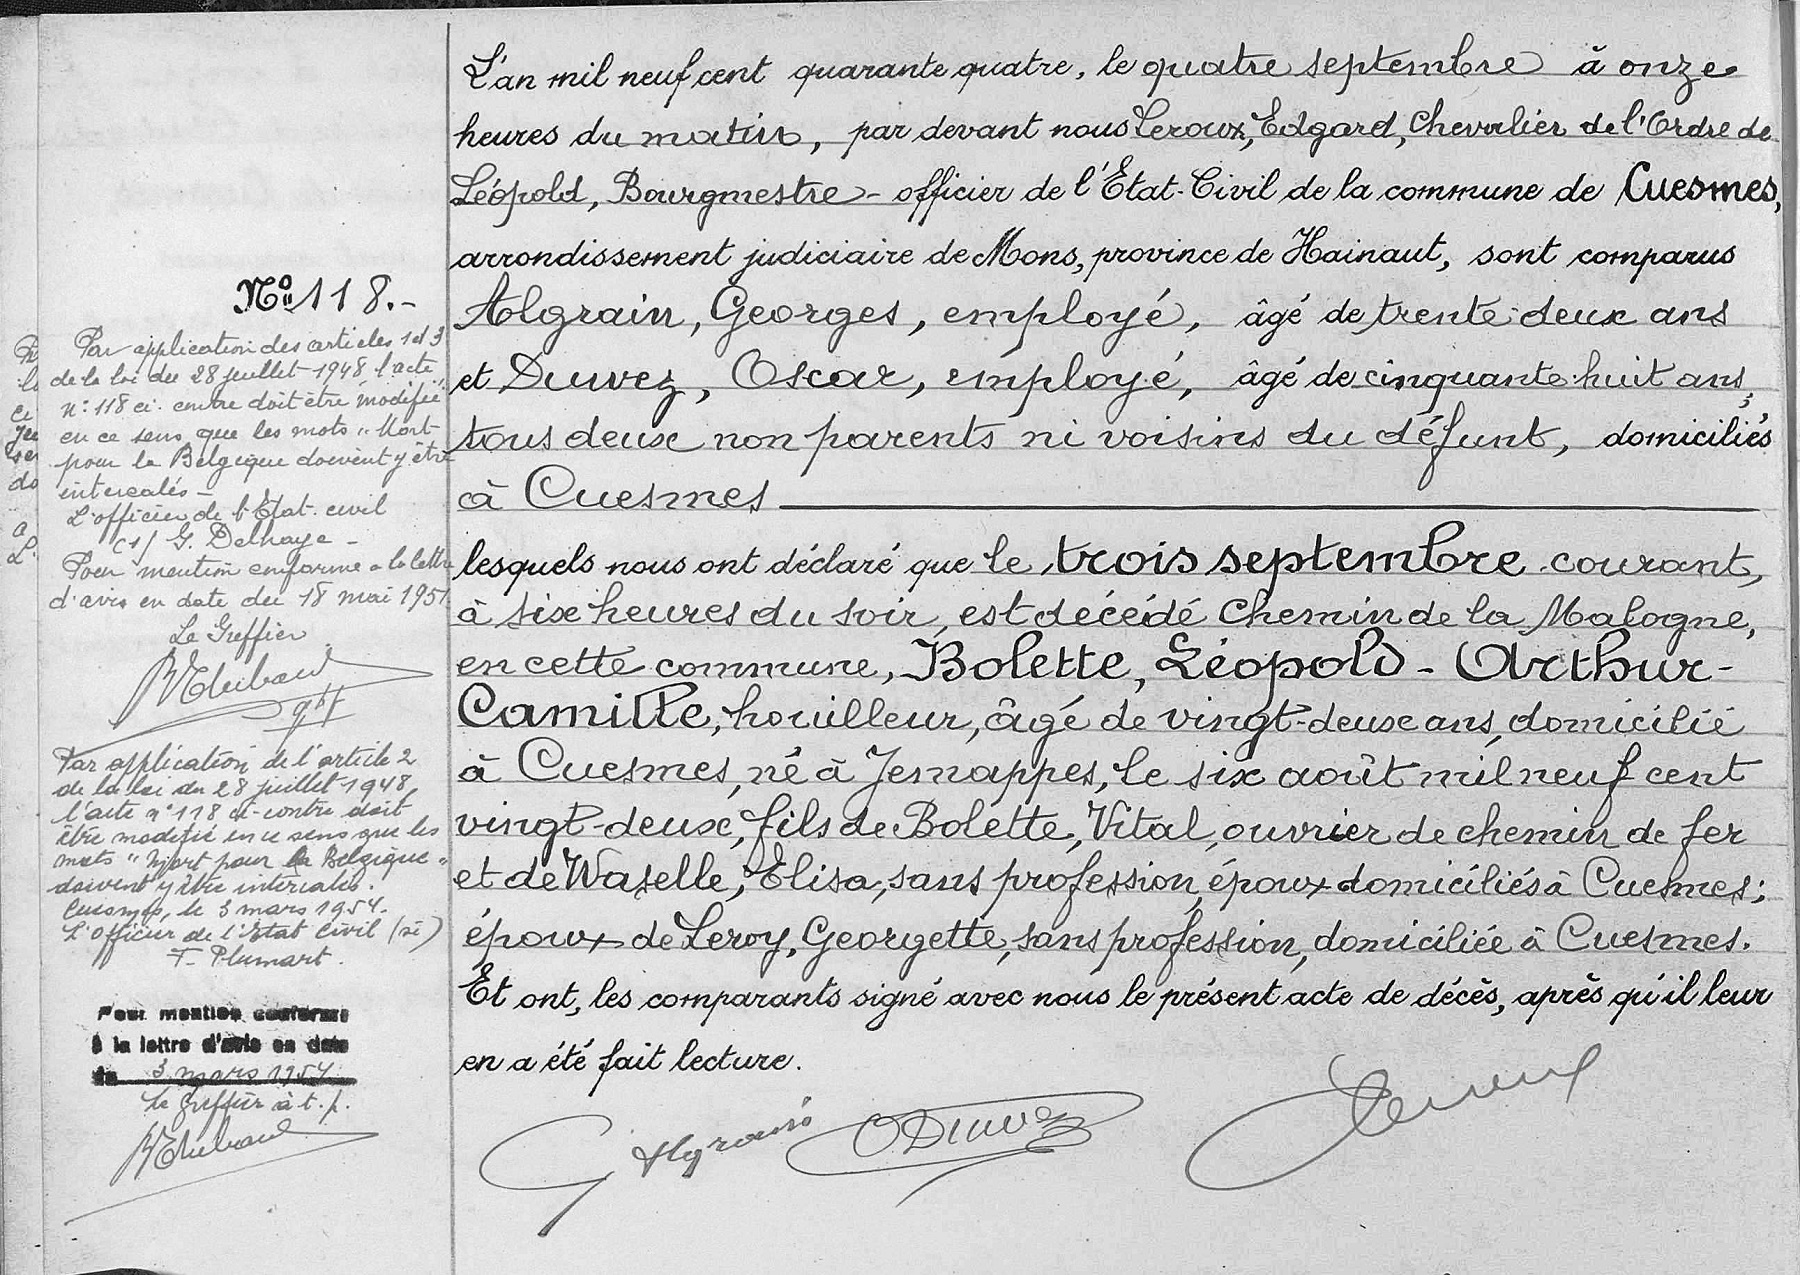 N° 118.-
Par application des articles 1 et 3
de la loi du 28 juillet 1948 l'acte
n° 118 ci-contre doit être modifié
en ce sens que les mots "Mort
pour la Belgique doivent y être
intercalés -
L'officier de l'Etat civil
(s) G. Delhaye -
Pour mention conforme à la lettre
d'avis en date du 18 mai 1951
Le Greffier
Par application de l'article 2
de la loi du 28 juillet 1948,
l'acte n° 118 ci-contre doit
être modifié en ce sens que les
mots "Mort pour la Belgique"
doivent y être intercalés.
Cuesmes, le 3 mars 1954.
L'Officier de l'Etat Civil (sé)
F. Plumart.
Pour mention conforme
à la lettre d'avis en date
du 3 mars 1954
Le Greffier à t. p.
L'an mil neuf cent quarante quatre, le quatre septembre à onze
heures du matin, par devant nous Leroux, Edgard, Chevalier de l'Ordre de
Léopold, Bourgmestre - officier de l'Etat-Civil de la commune de Cuesmes,
arrondissement judiciaire de Mons, province de Hainaut, sont comparus
Algrain, Georges, employé, âgé de trente deux ans
et Duvez, Oscar, employé, âgé de cinquante-huit ans,
tous deux non parents ni voisins du défunt, domiciliés
à Cuesmes
lesquels nous ont déclaré que le trois septembre courant,
à six heures du soir, est décédé Chemin de la Malogne,
en cette commune, Bolette, Léopold - Arthur-
Camille, houilleur, âgé de vingt-deux ans, domicilié
à Cuesmes, né à Jemappes, le six août mil neuf cent
vingt-deux, fils de Bolette, Vital, ouvrier de chemin de fer
et de Waselle, Elisa, sans profession, époux domiciliés à Cuesmes;
époux de Leroy, Georgette, sans profession, domiciliée à Cuesmes.
Et ont, les comparants signé avec nous le présent acte de décès, après qu'il leur
en a été fait lecture.
G Algrain ODuvez Leroux